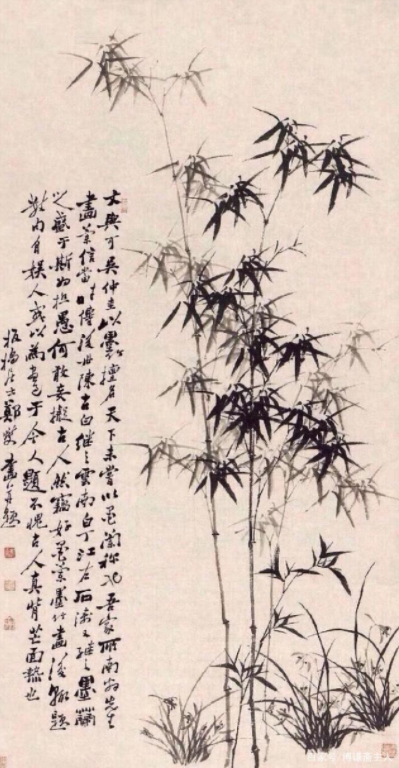 文與可吳仲圭以墨竹擅名天下未嘗以墨蘭称也吾家所南翁先生
畫蘭信當時傳後世陳古白繼之雲南白丁江左石濤又繼之墨蘭
之藝于斯为極愚何敢妄擬古人然竊好墨蘭墨竹畫後輒題
數句自娱人或以為畫于今人題不愧古人真背芒面熱也
板橋居士鄭燮畫并題
百家号/